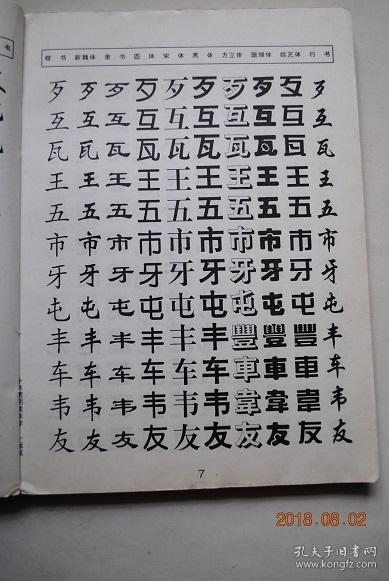 楷书 新魏体 隶书 圆体 宋体 黑体 方立体 珊瑚体 综艺体 行书
歹 歹 歹 歹 歹 歹 歹 歹 歹 歹
互 互 互 互 互 互 互 互 互 互
瓦 瓦 瓦 瓦 瓦 瓦 瓦 瓦 瓦 瓦
王 王 王 王 王 王 王 王 王 王
五 五 五 五 五 五 五 五 五 五
市 市 市 市 市 市 市 市 市 市
牙 牙 牙 牙 牙 牙 牙 牙 牙 牙
屯 屯 屯 屯 屯 屯 屯 屯 屯 屯
丰 丰 丰 丰 丰 丰 豐 豐 豐 丰
车 车 车 车 车 车 車 車 車 车
韦 韦 韦 韦 韦 韦 韋 韋 韋 韦
友 友 友 友 友 友 友 友 友 友
7
书
2018.08.02
孔夫子旧书网
www.kongfz.com